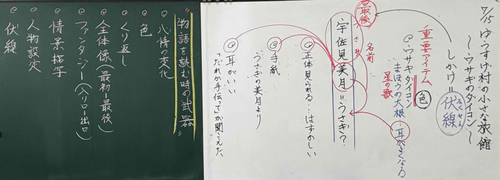 7/15 ゆうすげ村の小さな旅館
〜ウサギのダイコン〜
しかけ＝伏線
ふくせん
最後
重要アイテム
・ウサギダイコン 色
まほうの大根…耳がよくなる
星の歌
名前
宇佐見美月＝うさぎ？
うさ
②正体見られる…はずかしい
③手紙
うさぎの美月より
④耳がいい
「だれか手伝って」が聞こえた。
物語を読む時の武器
・心情の変化
・色
・くり返し
・全体像（最初→最後）
・ファンタジー（入り口→出口）
・情景描写
・人物設定
・伏線